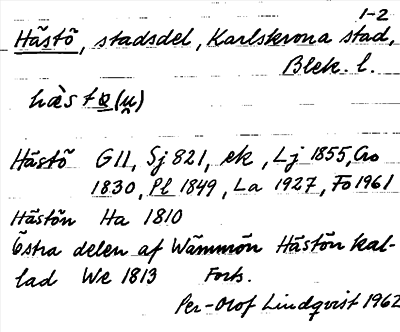 1-2
Hästö, stadsdel, Karlskrona stad,
Blek. l.
hàstö̱(u̯)
Hästö G11, Sj 821, ek, Lj 1855, Cro
1830, Pl 1849, La 1927, Fo 1961
Hästön Ha 1810
Östra delen af Wämmön Hästön kal-
lad We 1813 Forts.
Per-Olof Lindqvist 1962